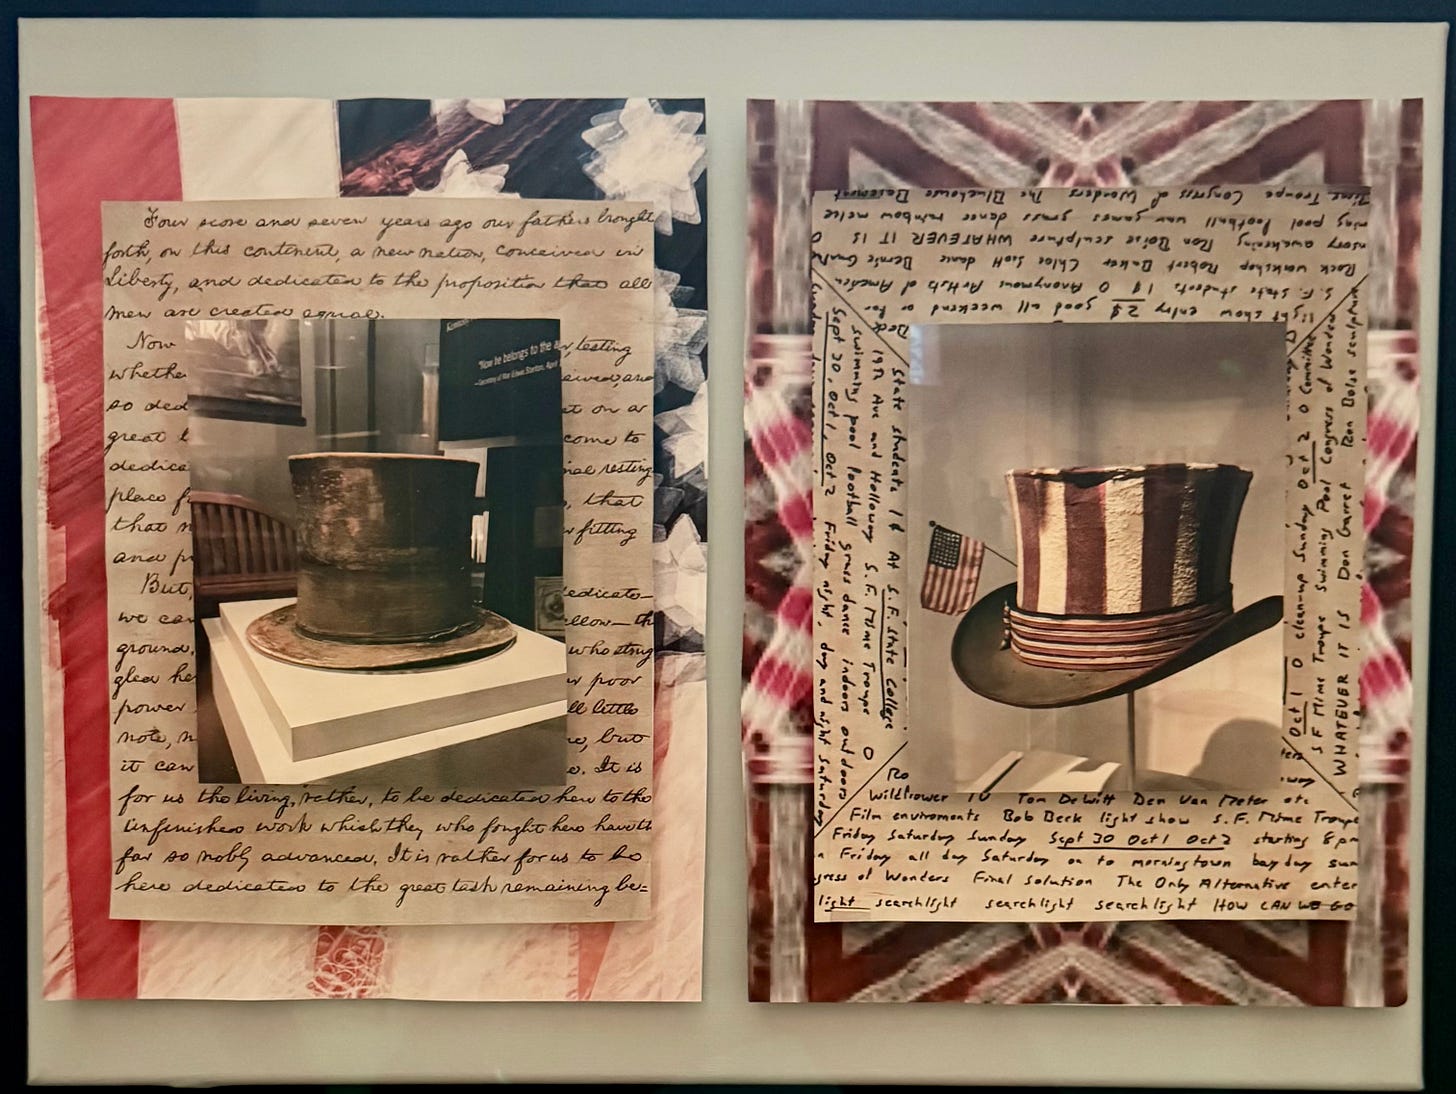 Four score and seven years ago our fathers brought
forth, on this continent, a new nation, conceived in
Liberty, and dedicated to the proposition that all
men are created equal.
Now
testing
whethe
so ded
at on a
great
come to
dedica
resting
place f
that
that
fitting
and p
But,
dedicate—
we can
ground,
who strug
gled he
poor
power
ll little
note, n
but
it can
It is
for us the living, rather, to be dedicated here to the
unfinished work which they who fought here have th
far so nobly advanced. It is rather for us to be
here dedicated to the great task remaining be=
"Now he belongs to the a
—Secretary of War Edwin Stanton, April
Mime Troupe Congress of Wonders The Bluehouse Basement
ming pool football war games grass dance rainbow melee
nsory awakening Ron Boise sculpture WHATEVER IT IS O
Rock workshop Robert Baker Chloe Scott dance Bernie
S. F. State students 1¢ O Anonymous Artists of America
light show entry 2$ good all weekend or for
State students 1¢ At S.F. State College
19th Ave and Holloway S.F. Mime Troupe O
swimming pool football grass dance indoors outdoors
Sept 30, Oct 1, Oct 2 Friday night, day and night Saturday
Oct 1 O clean-up Sunday Oct 2 O Committee
SF Mime Troupe Swimming Pool Congress of Wonders
WHATEVER IT IS Don Garret Ron Boise sculpture
Ro
Wildflower IV Tom DeWitt Den Van Meter etc
Film enviroments Bob Beck light show S.F. Mime Troupe
Friday Saturday Sunday Sept 30 Oct 1 Oct 2 starting 8pm
n Friday all day Saturday on to morningtown bay day sun
gress of Wonders Final Solution The Only Alternative enter
light searchlight searchlight searchlight HOW CAN WE GO